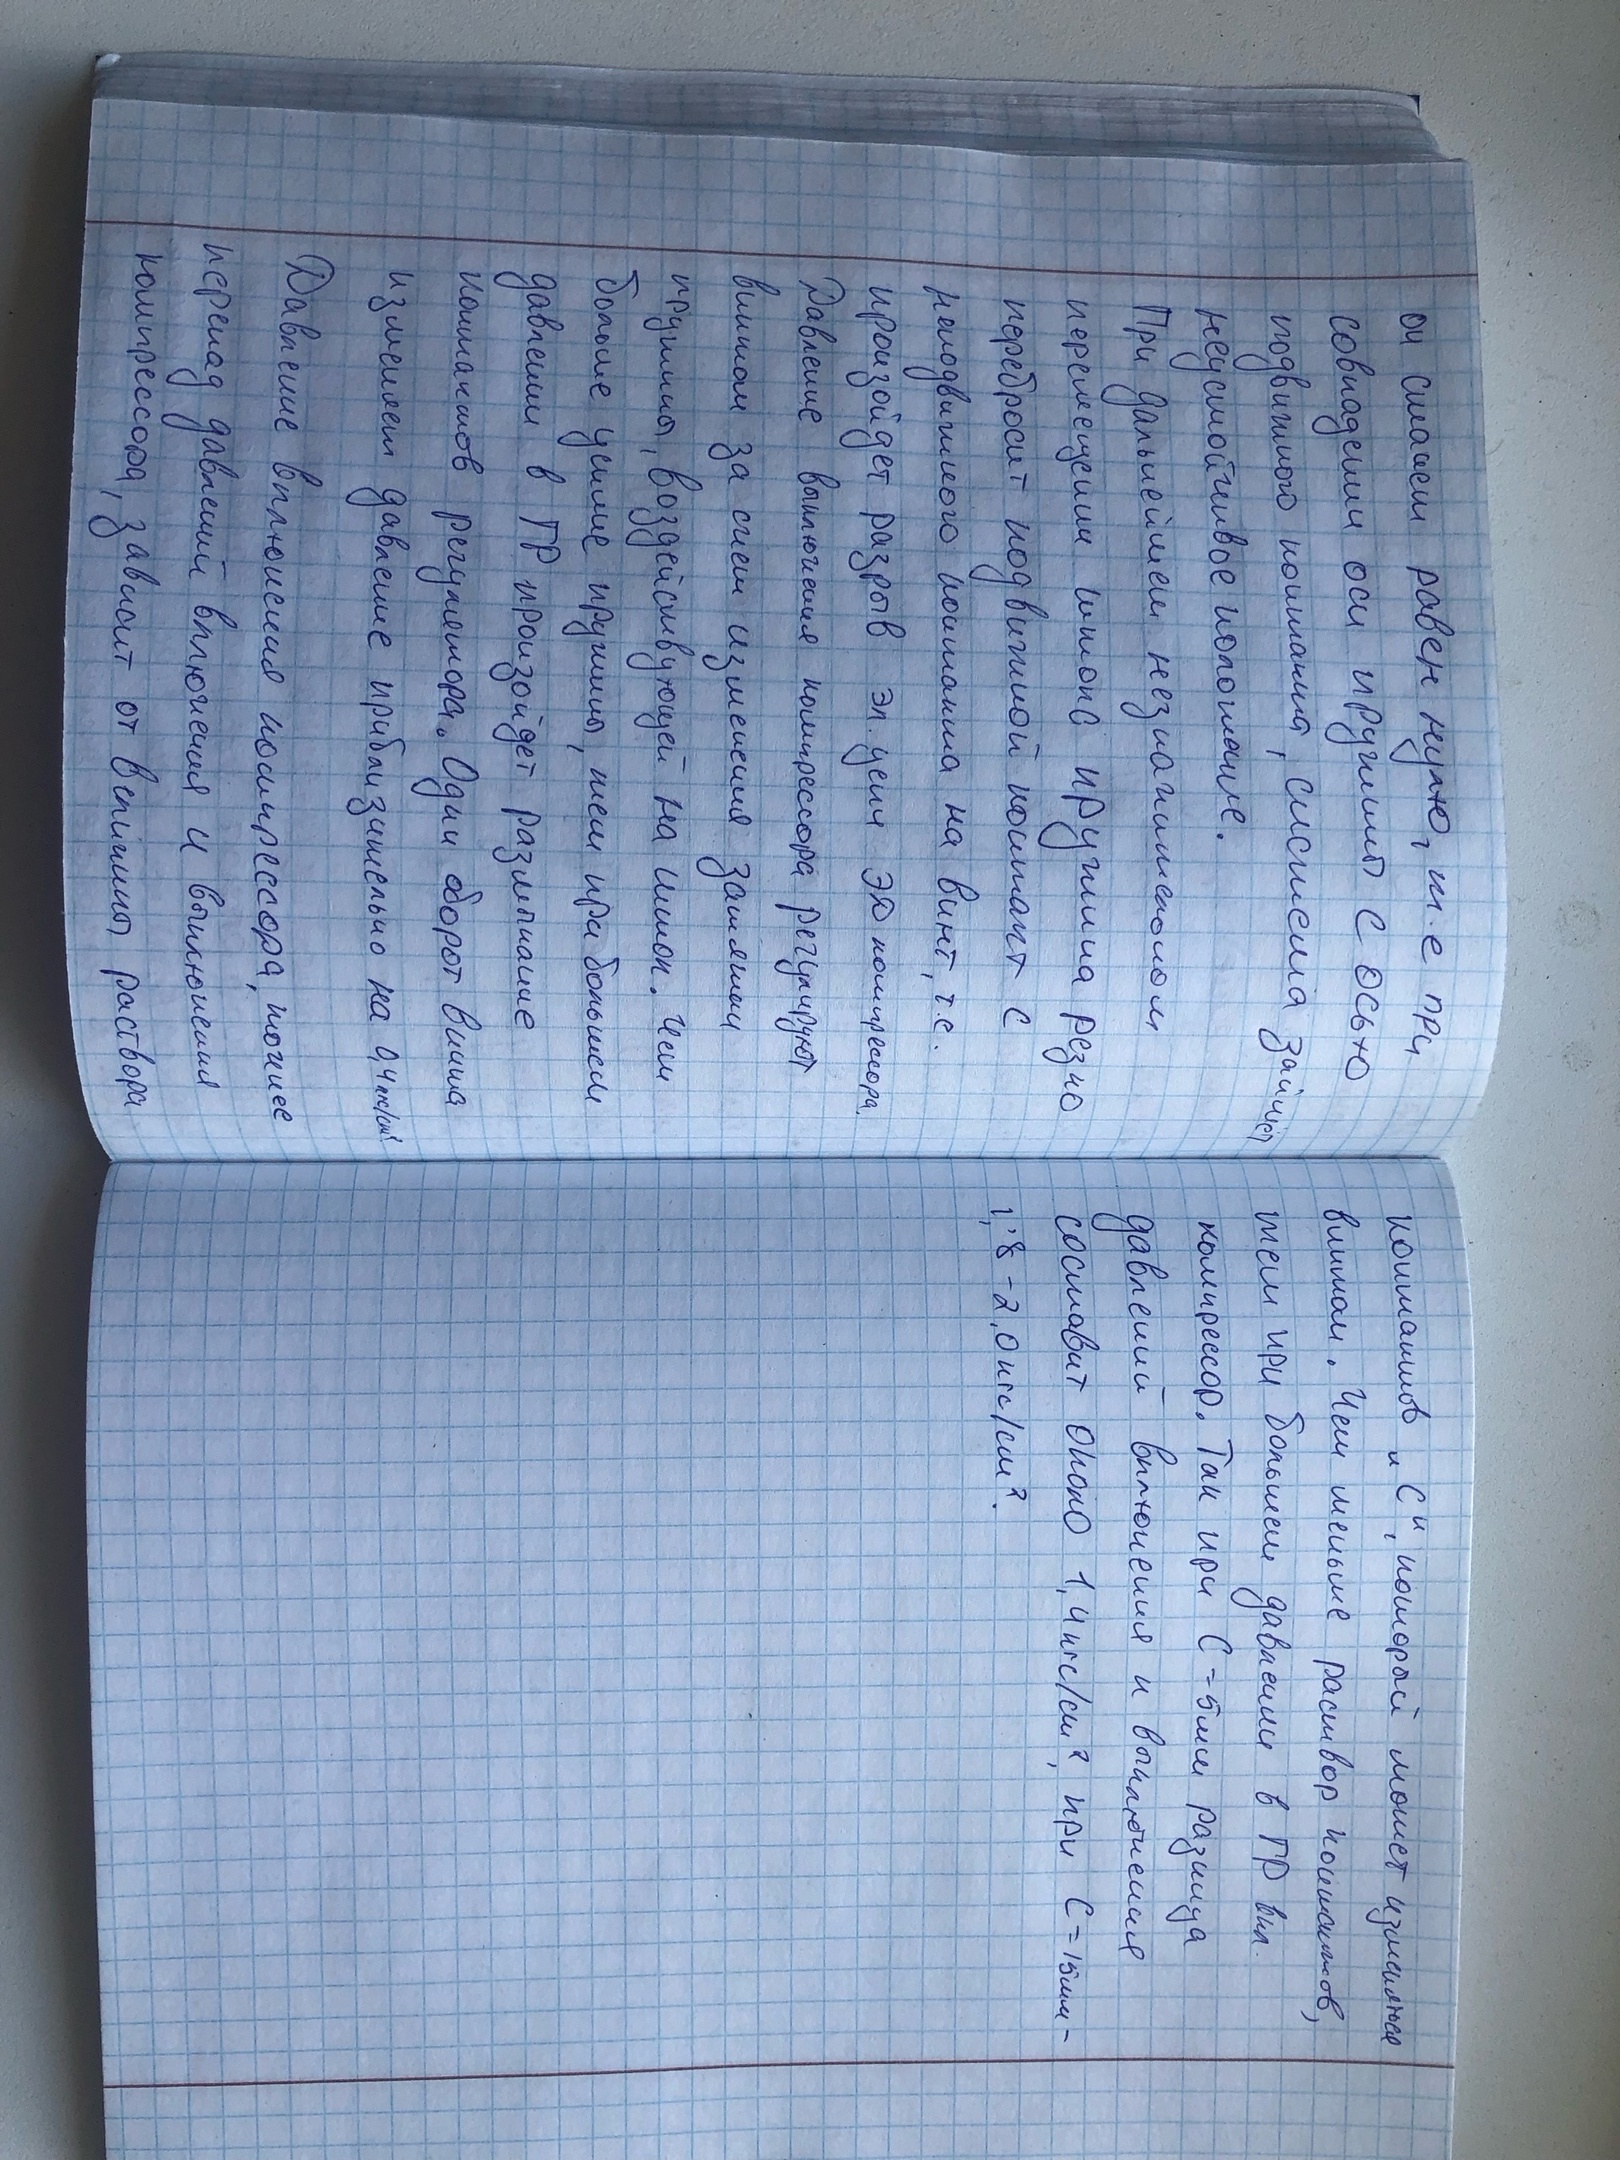 он станет равен нулю, т.е при
совпадении оси пружины с осью
подвижного контакта, система займет
неустойчивое положение.
При дальнейшем незначительном
перемещении штока пружина резко
перебросит подвижной контакт с
неподвижного контакта на винт, т.е.
произойдет разрыв эл. цепи ЭД компрессора.
Давление выключения компрессора регулируют
винтом за счет изменения затяжки
пружины, воздействующей на шток. Чем
больше усилие пружины, тем при большем
давлении в ГР произойдет размыкание
контактов регулятора. Один оборот винта
изменяет давление приблизительно на 0,4кгс/см²
Давление включения компрессора, точнее
перепад давлений включения и выключения
компрессора, зависит от величины раствора
контактов "С", который может изменяться
винтом. Чем меньше раствор контактов,
тем при большем давлении в ГР вкл.
компрессор. Так при С=5мм разница
давлений включения и выключения
составит около 1,4кгс/см², при С=15мм-
1,8-2,0кгс/см².